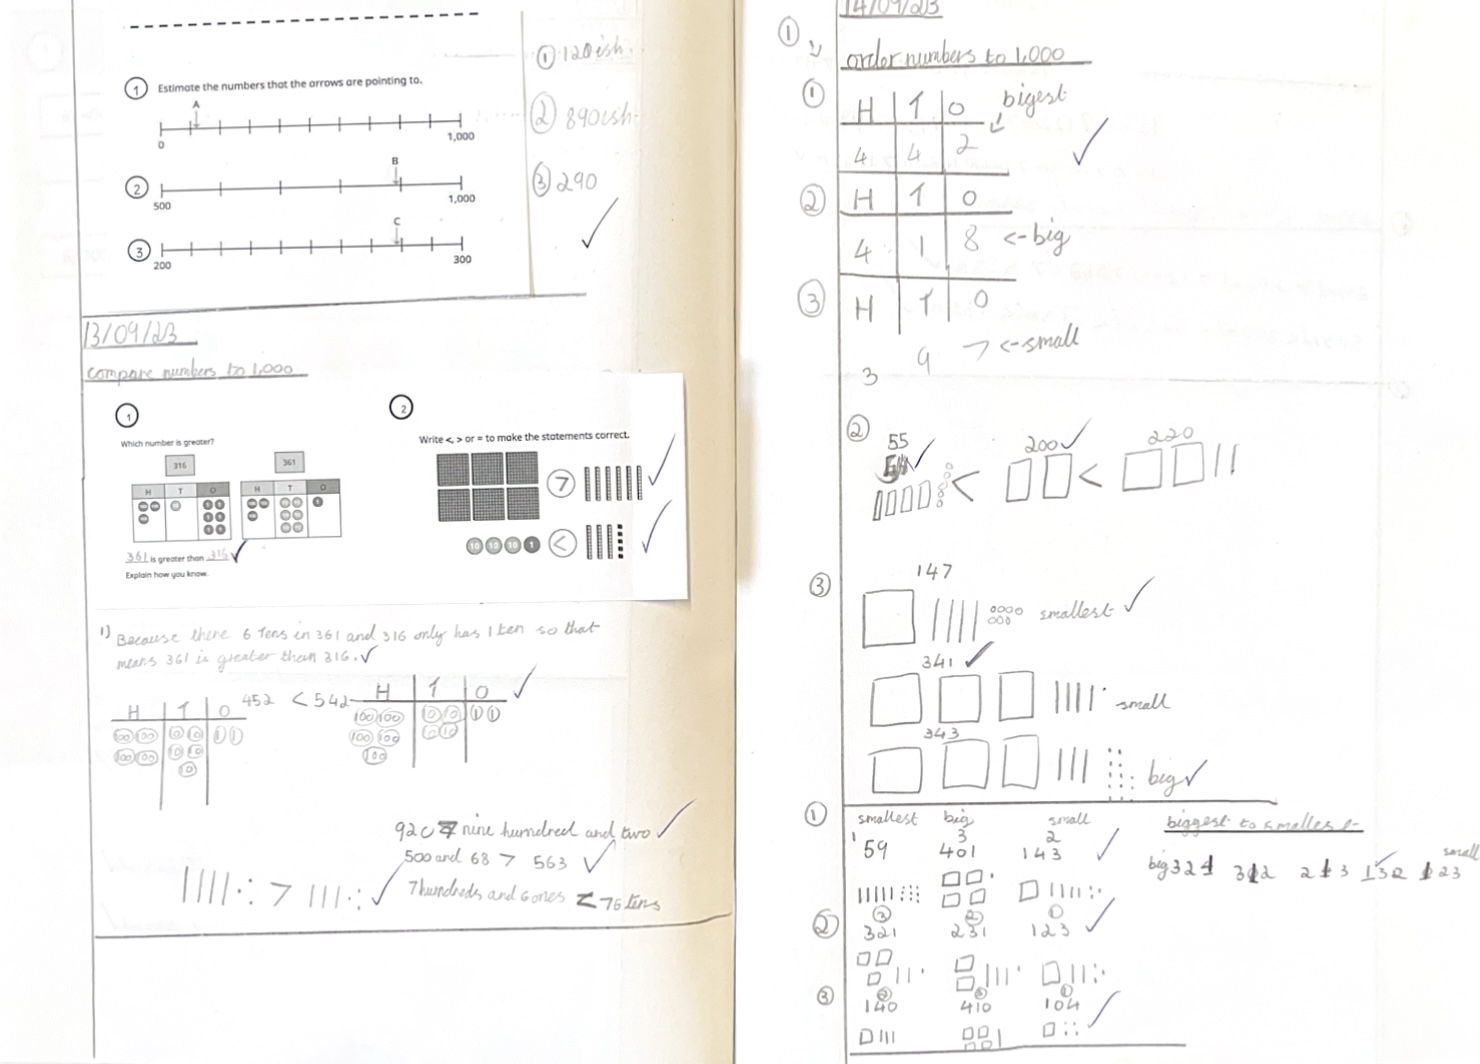 ① Estimate the numbers that the arrows are pointing to.
A
0 1,000
②
B
500 1,000
③
C
200 300
① 120ish.
② 890ish.
③ 290
13/09/23
compare numbers to 1,000
1
Which number is greater?
316 361
H T O H T O
361 is greater than 316
Explain how you know.
2
Write <, > or = to make the statements correct.
>
10 10 10 1 <
1) Because there 6 Tens in 361 and 316 only has 1 ten so that
means 361 is greater than 316.
452 < 542
H T O
100 100 10 10 1 1
100 100 10 10
10
H T O
100 100 10 10 1 1
100 100 10 10
100
920 > nine humdred and two
500 and 68 > 563
>
7 humdreds and 6 ones < 76 tens
14/09/23
①
order numbers to 1,000
① H T O bigest
4 4 2
② H T O
4 1 8 <-big
③ H T O
3 9 7 <-small
②
55 200 220
< <
③
147
smallest
341
small
343
big
① smallest big small
1 3 2
59 401 143
② ③ ② ①
321 231 123
③ ② ③ ①
140 410 104
biggest to smallest
big 321 312 213 132 123 small